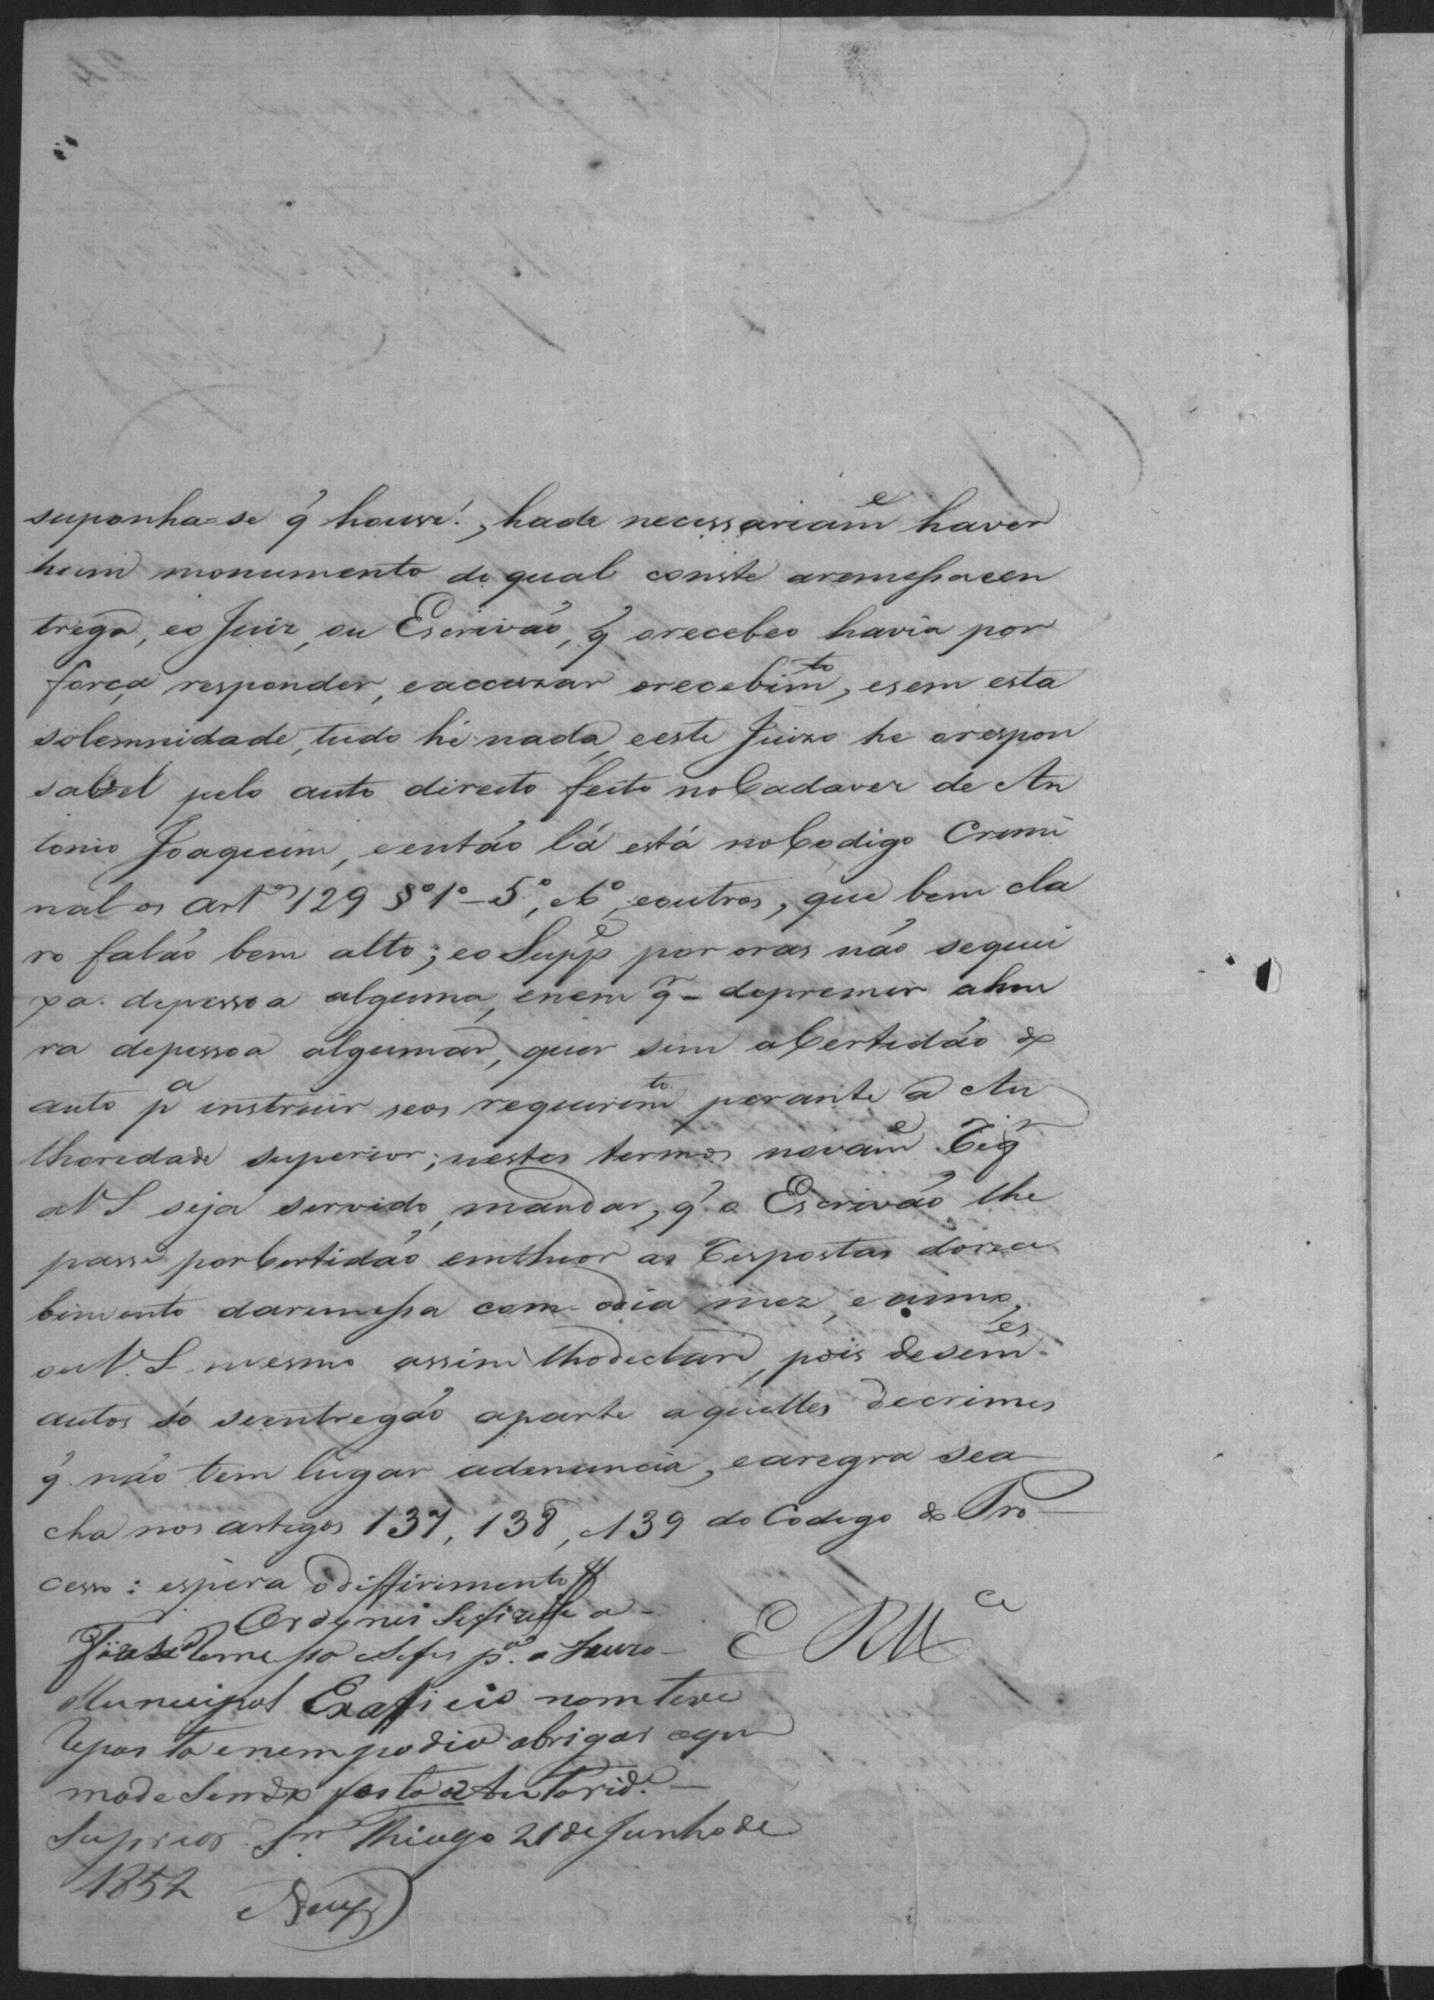 suponha=se q̃ houve!, hade necessariam.e haver
hum monumento do qual conste aremessaeen
trega, eo Juiz, ou Escrivão, q̃ orecebeo havia por
força responder, eaccuzar orecebim.to, esem esta
solemnidade, tudo hé nada, eeste Juizo he orespon
savel pelo auto direito feito noCadaver de An
tonio Joaquim, eentão lá está noCodigo Crimi
nal os art.os 129 §º 1º - 5º, e 6º, eoutros, que bem cla
ro falão bem alto; eo Supp.e por oras não sequei
xa depessoa alguma, enem q.r depremir ahon
ra depessoa alguma, quer sim aCertidão do
auto p.a instruir seos requerim.to perante a Au
thoridade superior; nestes termos novam.e Req.r
aV S seja servido, mandar, q̃ o Escrivão lhe
passe porCertidão emtheor as Respostas dorece
bimento daremessa com odia mez, e anno,
ouV. S. mesmo assim lhodeclare, pois desem.es
autos só seentregão aparte aquelles decrimes
q̃ não tem lugar adenuncia, earegra sea
cha nos artigos 137, 138, e139 do Codigo do Pro
cesso: espera odifferimento
E R M.ce
Remessa p.a o Juizo
Municipal Exaficio nom teve
Reposta enem podia obrigar aque
made
Suprior S.m Thiago 21 de Junho de
1852